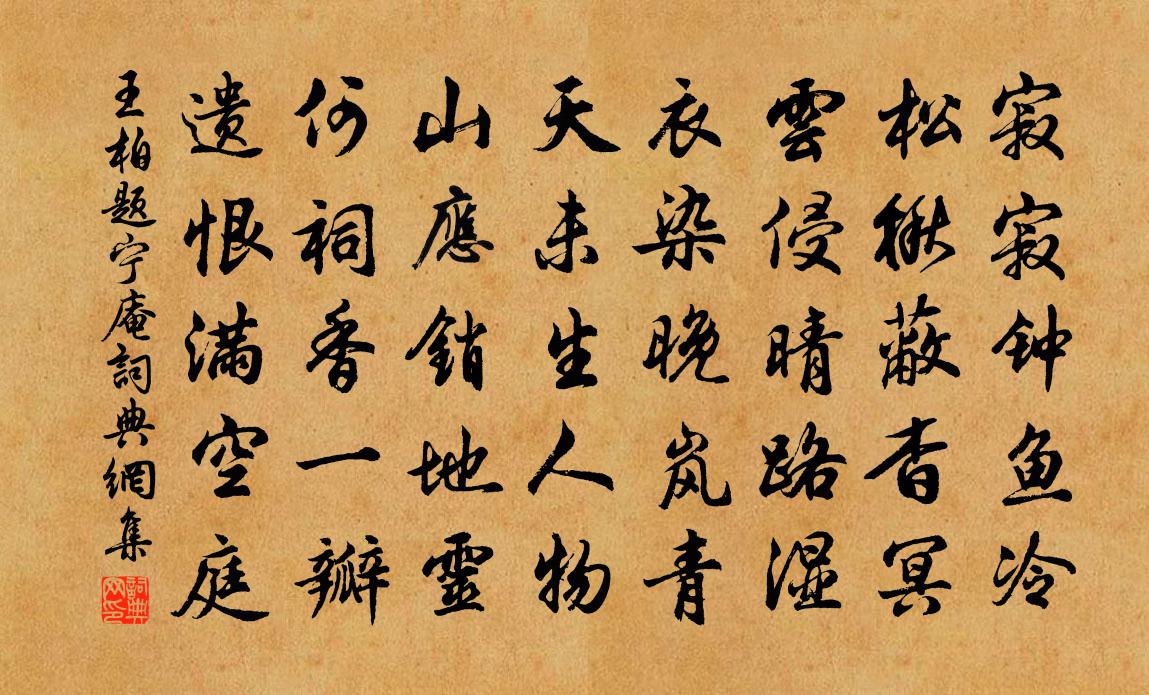 寂寂钟鱼冷
松楸蔽杳冥
雲侵晴路湿
衣染晚岚青
天未生人物
山應銷地靈
何祠香一瓣
遗恨满空庭
王柏题宁庵詞典網集
詞典網印